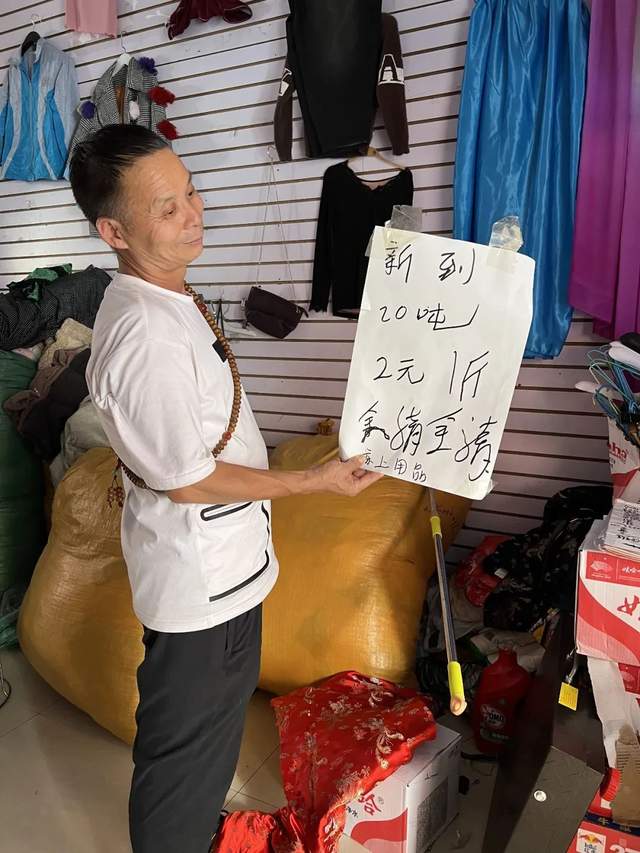 新到
20吨
2元1斤
全清全清
床上用品